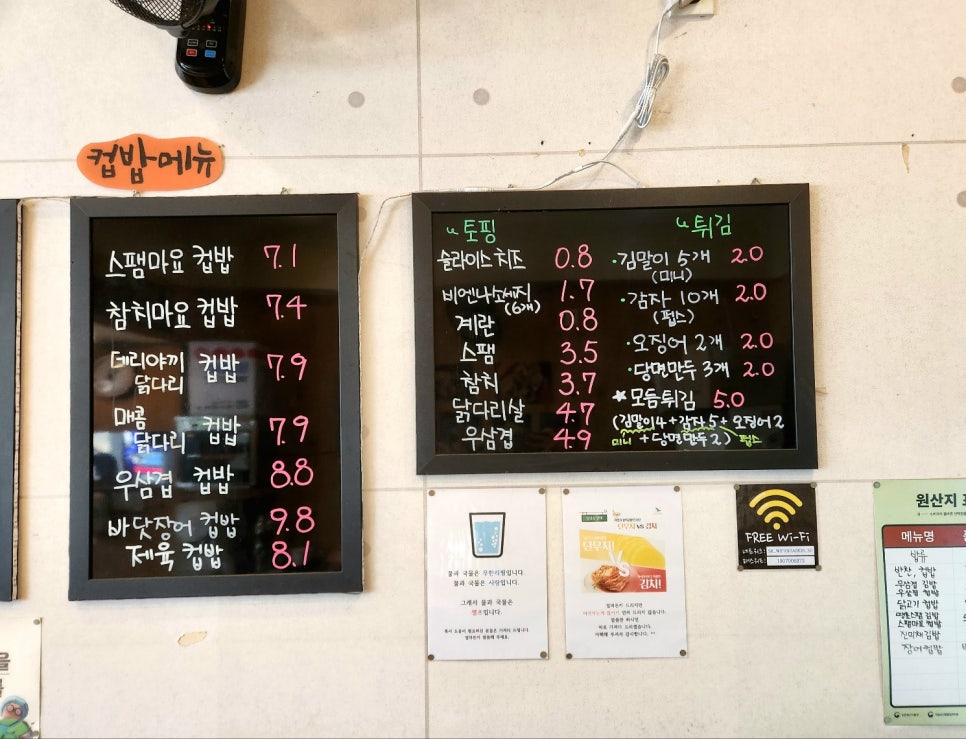 컵밥메뉴
스팸마요 컵밥 7.1
참치마요 컵밥 7.4
데리야끼 닭다리 컵밥 7.9
매콤 닭다리 컵밥 7.9
우삼겹 컵밥 8.8
바닷장어 컵밥 9.8
제육 컵밥 8.1
토핑
슬라이스 치즈 0.8
비엔나소세지 (6개) 1.7
계란 0.8
스팸 3.5
참치 3.7
닭다리살 4.7
우삼겹 4.9
튀김
·김말이 5개 2.0
(미니)
·감자 10개 2.0
(펍스)
·오징어 2개 2.0
·당면만두 3개 2.0
★모듬튀김 5.0
(김말이4+감자5+오징어2
미니 +당면만두2) 펍스
물과 국물은 무한리필입니다.
물과 국물은 사랑입니다.
그래서 물과 국물은
셀프입니다.
단무지 VS 김치
단무지!
VS
김치
FREE Wi-Fi
원산지
메뉴명
밥류
반찬, 컵밥
우삼겹 김밥
우삼겹 컵밥
닭고기 컵밥
스팸마요 컵밥
진미채 김밥
장어 컵밥
을